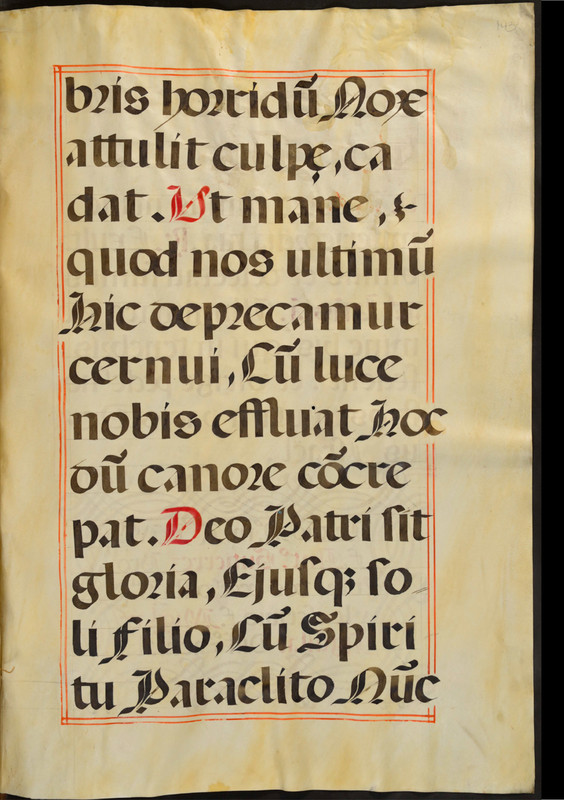 bris horridū Nox
attulit culpę, ca
dat. Ut mane, &
quod nos ultimū
hic deprecamur
cernui, Cū luce
nobis effluat hoc
dū canore cōcre
pat. Deo Patri ſit
gloria, Ejuſq; ſo
li Filio, Cū Spiri
tu Paraclito Nūc